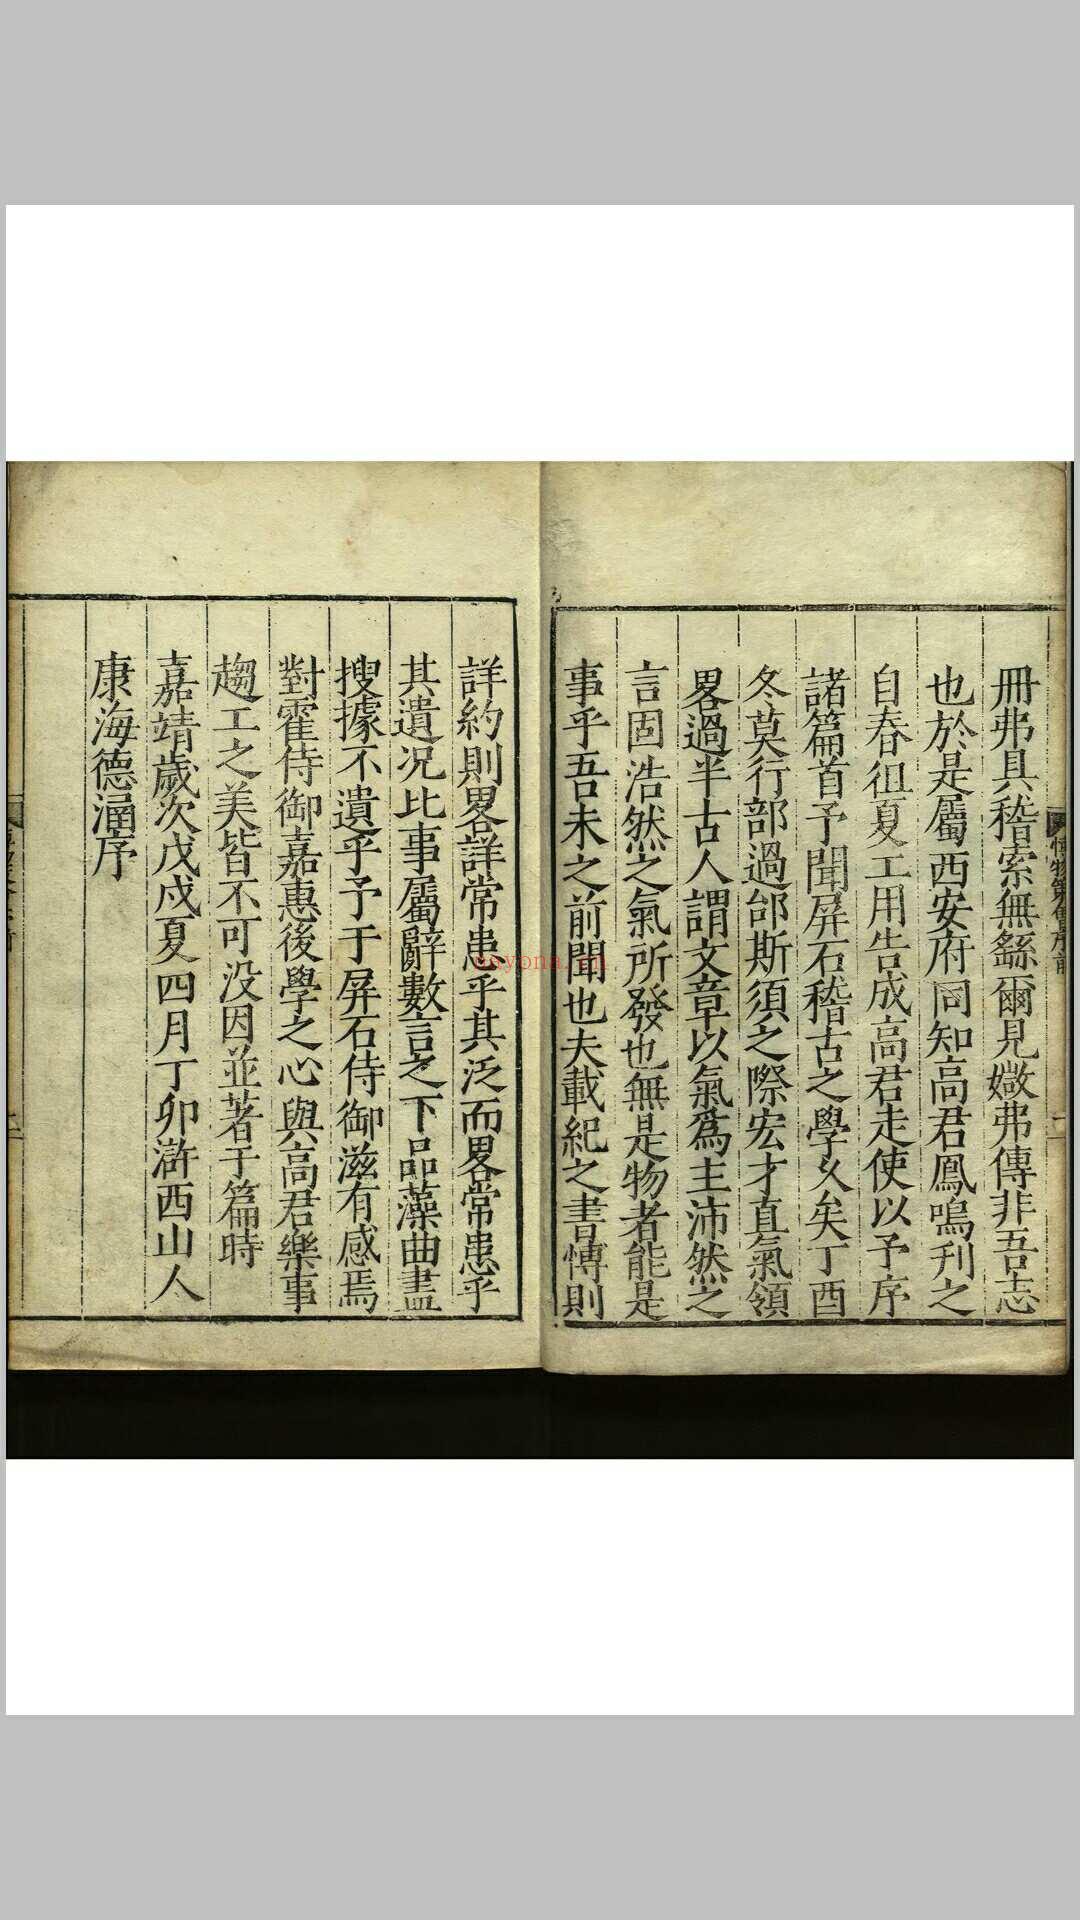 冊弗具稽索無繇爾見媺弗傳非吾志
也於是屬西安府同知高君鳳鳴刋之
自春徂夏工用告成高君走使以予序
諸篇首予聞屏石稽古之學久矣丁酉
冬莫行部過邰斯須之際宏才直氣領
畧過半古人謂文章以氣爲主沛然之
言固浩然之氣所發也無是物者能是
事乎吾未之前聞也夫載紀之書慱則
詳約則畧詳常患乎其泛而畧常患乎
其遺況比事屬辭數言之下品藻曲盡
搜據不遺乎予于屏石侍御滋有感焉
對霍侍御嘉惠後學之心與高君樂事
趨工之美皆不可没因並著于篇時
嘉靖歲次戊戌夏四月丁卯滸西山人
康海德涵序
nsyona.cn